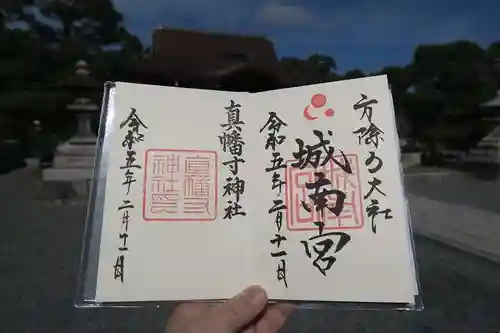 方除の大社
城南宮
令和五年二月十一日
真幡寸神社
真幡寸
神社之印
令和五年二月十一日